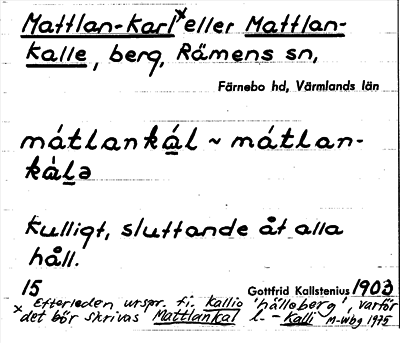 Mattlan-Karl* eller Mattlan-
Kalle, berg, Rämens sn,
Färnebo hd, Värmlands län
mátlankál ~ mátlan-
kàlə
Kulligt, sluttande åt alla
håll.
15 Gottfrid Kallstenius 1903
x Efterleden urspr. fi. kallio 'hälleberg', varför
det bör skrivas Mattlankal l. -Kalli M-wbg 1975